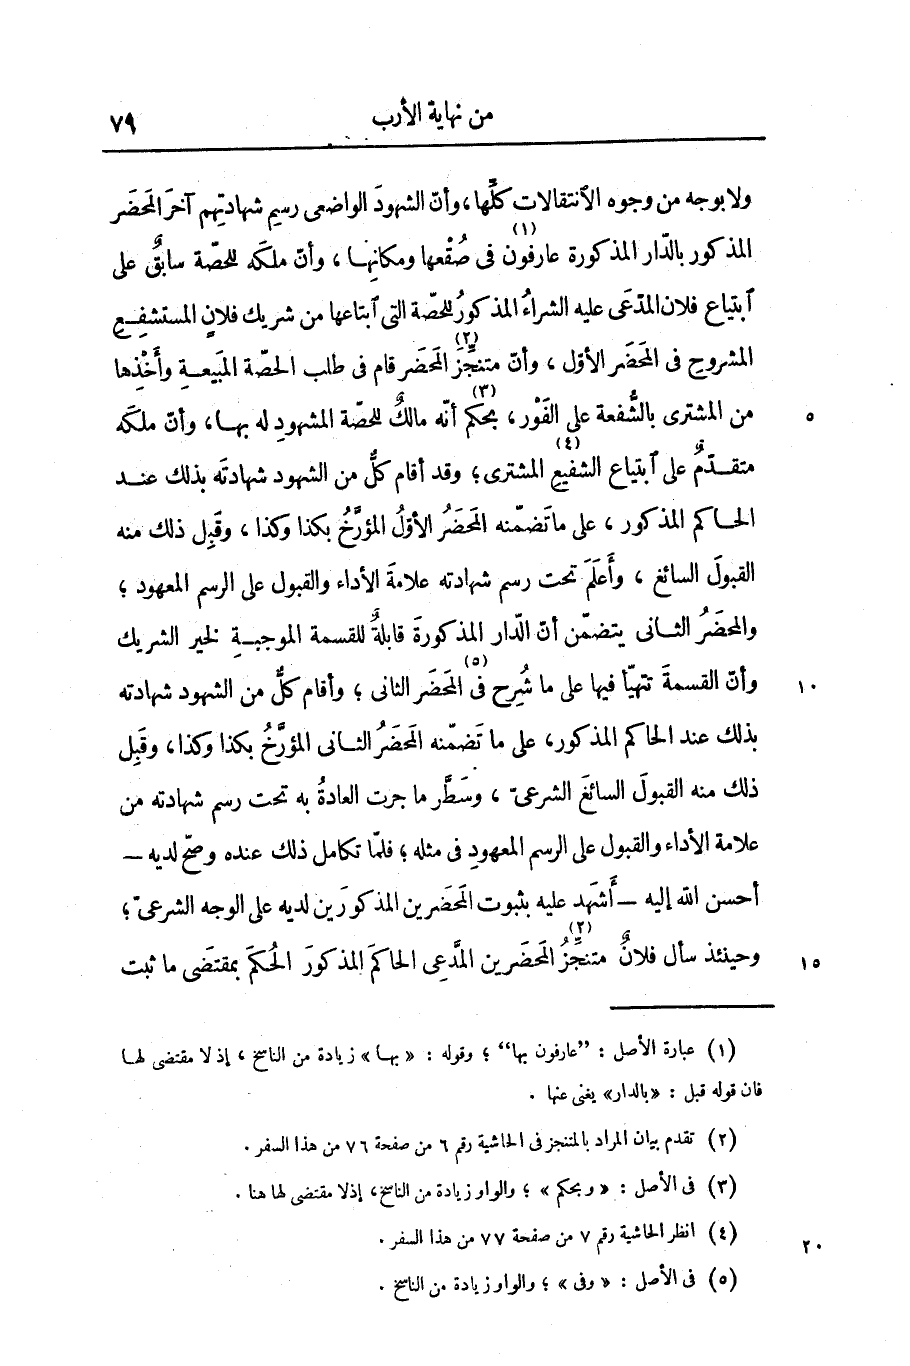 ٧٩ من نهاية الأرب
ولا بوجه من وجوه الٱنتقالات كلِّها، وأنّ الشهودَ الواضعى رسمِ شهادتِهم آخرَ المَحضَر
المذكور بالدّار المذكورة عارفون (١) فى صُقْعها ومكانِها ، وأنّ ملكَه للحصّة سابقٌ على
ٱبتياع فلان المدّعَى عليه الشراءُ المذكورُ للحصّة التى ٱبتاعها من شريك فلانٍ المستشفِـعِ
المشروح فى المَحضَر الأوّل ، وأنّ متنجِّزَ (٢) المَحضَر قام فى طلب الحصّة المَبيعـة وأَخْذِها
٥ من المشترى بالشُّفعة على الفَوْر ، بحكم (٣) أنّه مالكٌ للحصّة المشهودِ له بهـا، وأنّ ملكَه
متقـدّمٌ على ٱبتياع الشفيعِ (٤) المشترى؛ وقد أقام كلٌّ من الشهود شهادتَه بذلك عنـد
الحـاكم المذكور ، على ما تَضمّنه المَحضَرُ الأوّلُ المؤرَّخُ بكذا وكذا ، وقَبِل ذلك منه
القبولَ السائغ ، وأَعلَمَ تحت رسم شهادته علامةَ الأداء والقبول على الرسم المعهود ؛
والمحضَرُ الثـانى يتضمّن أنّ الدّار المذكورةَ قابلةٌ للقسمة الموجبـةِ لخير الشريك
١٠ وأنّ القسمةَ تتهيّأ فيها على ما شُرِح فى (٥) المَحضَر الثانى ؛ وأقام كلٌّ من الشهود شهادته
بذلك عند الحاكم المذكور، على ما تَضمّنه المَحضَرُ الثـانى المؤرَّخُ بكذا وكذا، وقَبِل
ذلك منه القبولَ السائغَ الشرعىّ ، وسَطَّر ما جرت العادةُ به تحت رسم شهادته من
علامة الأداء والقبول على الرسم المعهودِ فى مثله ؛ فلمّا تكامل ذلك عنده وصحّ لديه —
أحسن الله إليه — أَشهَد عليه بثبوت المَحضَرين المذكورَين لديه على الوجه الشرعىّ؛
١٥ وحينئذ سأل فلانٌ متنجِّزُ (٢) المَحضَرين المدَّعى الحاكمَ المذكورَ الحُكمَ بمقتضَى ما ثبت
(١) عبارة الأصل : ”عارفون بها“ ؛ وقوله : «بهـا» زيادة من الناسخ ، إذ لا مقتضى لهـا
فان قوله قبل : «بالدار» يغنى عنها .
(٢) تقدم بيان المراد بالمتنجز فى الحاشية رقم ٦ من صفحة ٧٦ من هذا السفر .
(٣) فى الأصل : «وبحكم» ؛ والواو زيادة من الناسخ، إذلا مقتضى لها هنا .
٢٠ (٤) انظر الحاشية رقم ٧ من صفحة ٧٧ من هذا السفر .
(٥) فى الأصل : «وفى» ؛ والواو زيادة من الناسخ .